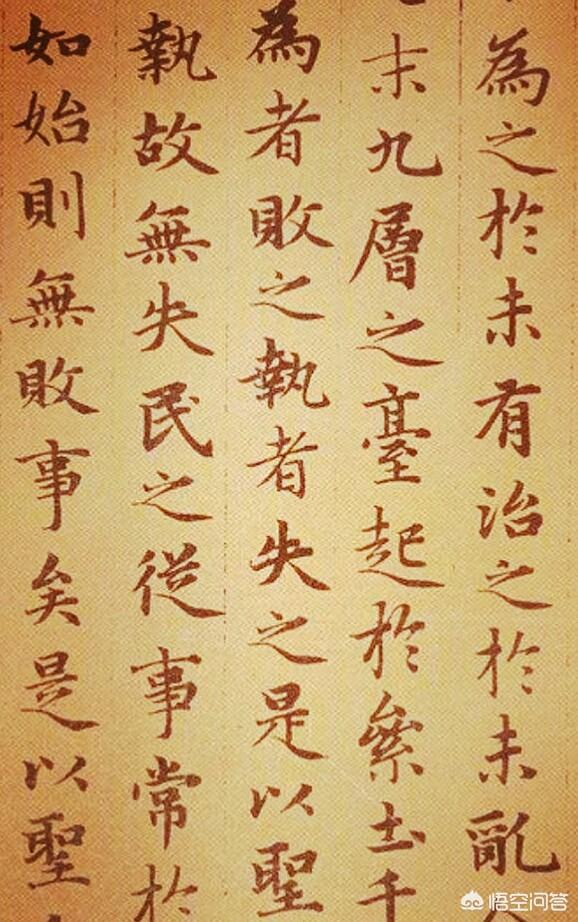 為之於未有治之於未亂
末九層之臺起於絫土千
為者敗之執者失之是以聖
執故無失民之從事常於
如始則無敗事矣是以聖
悟空问答